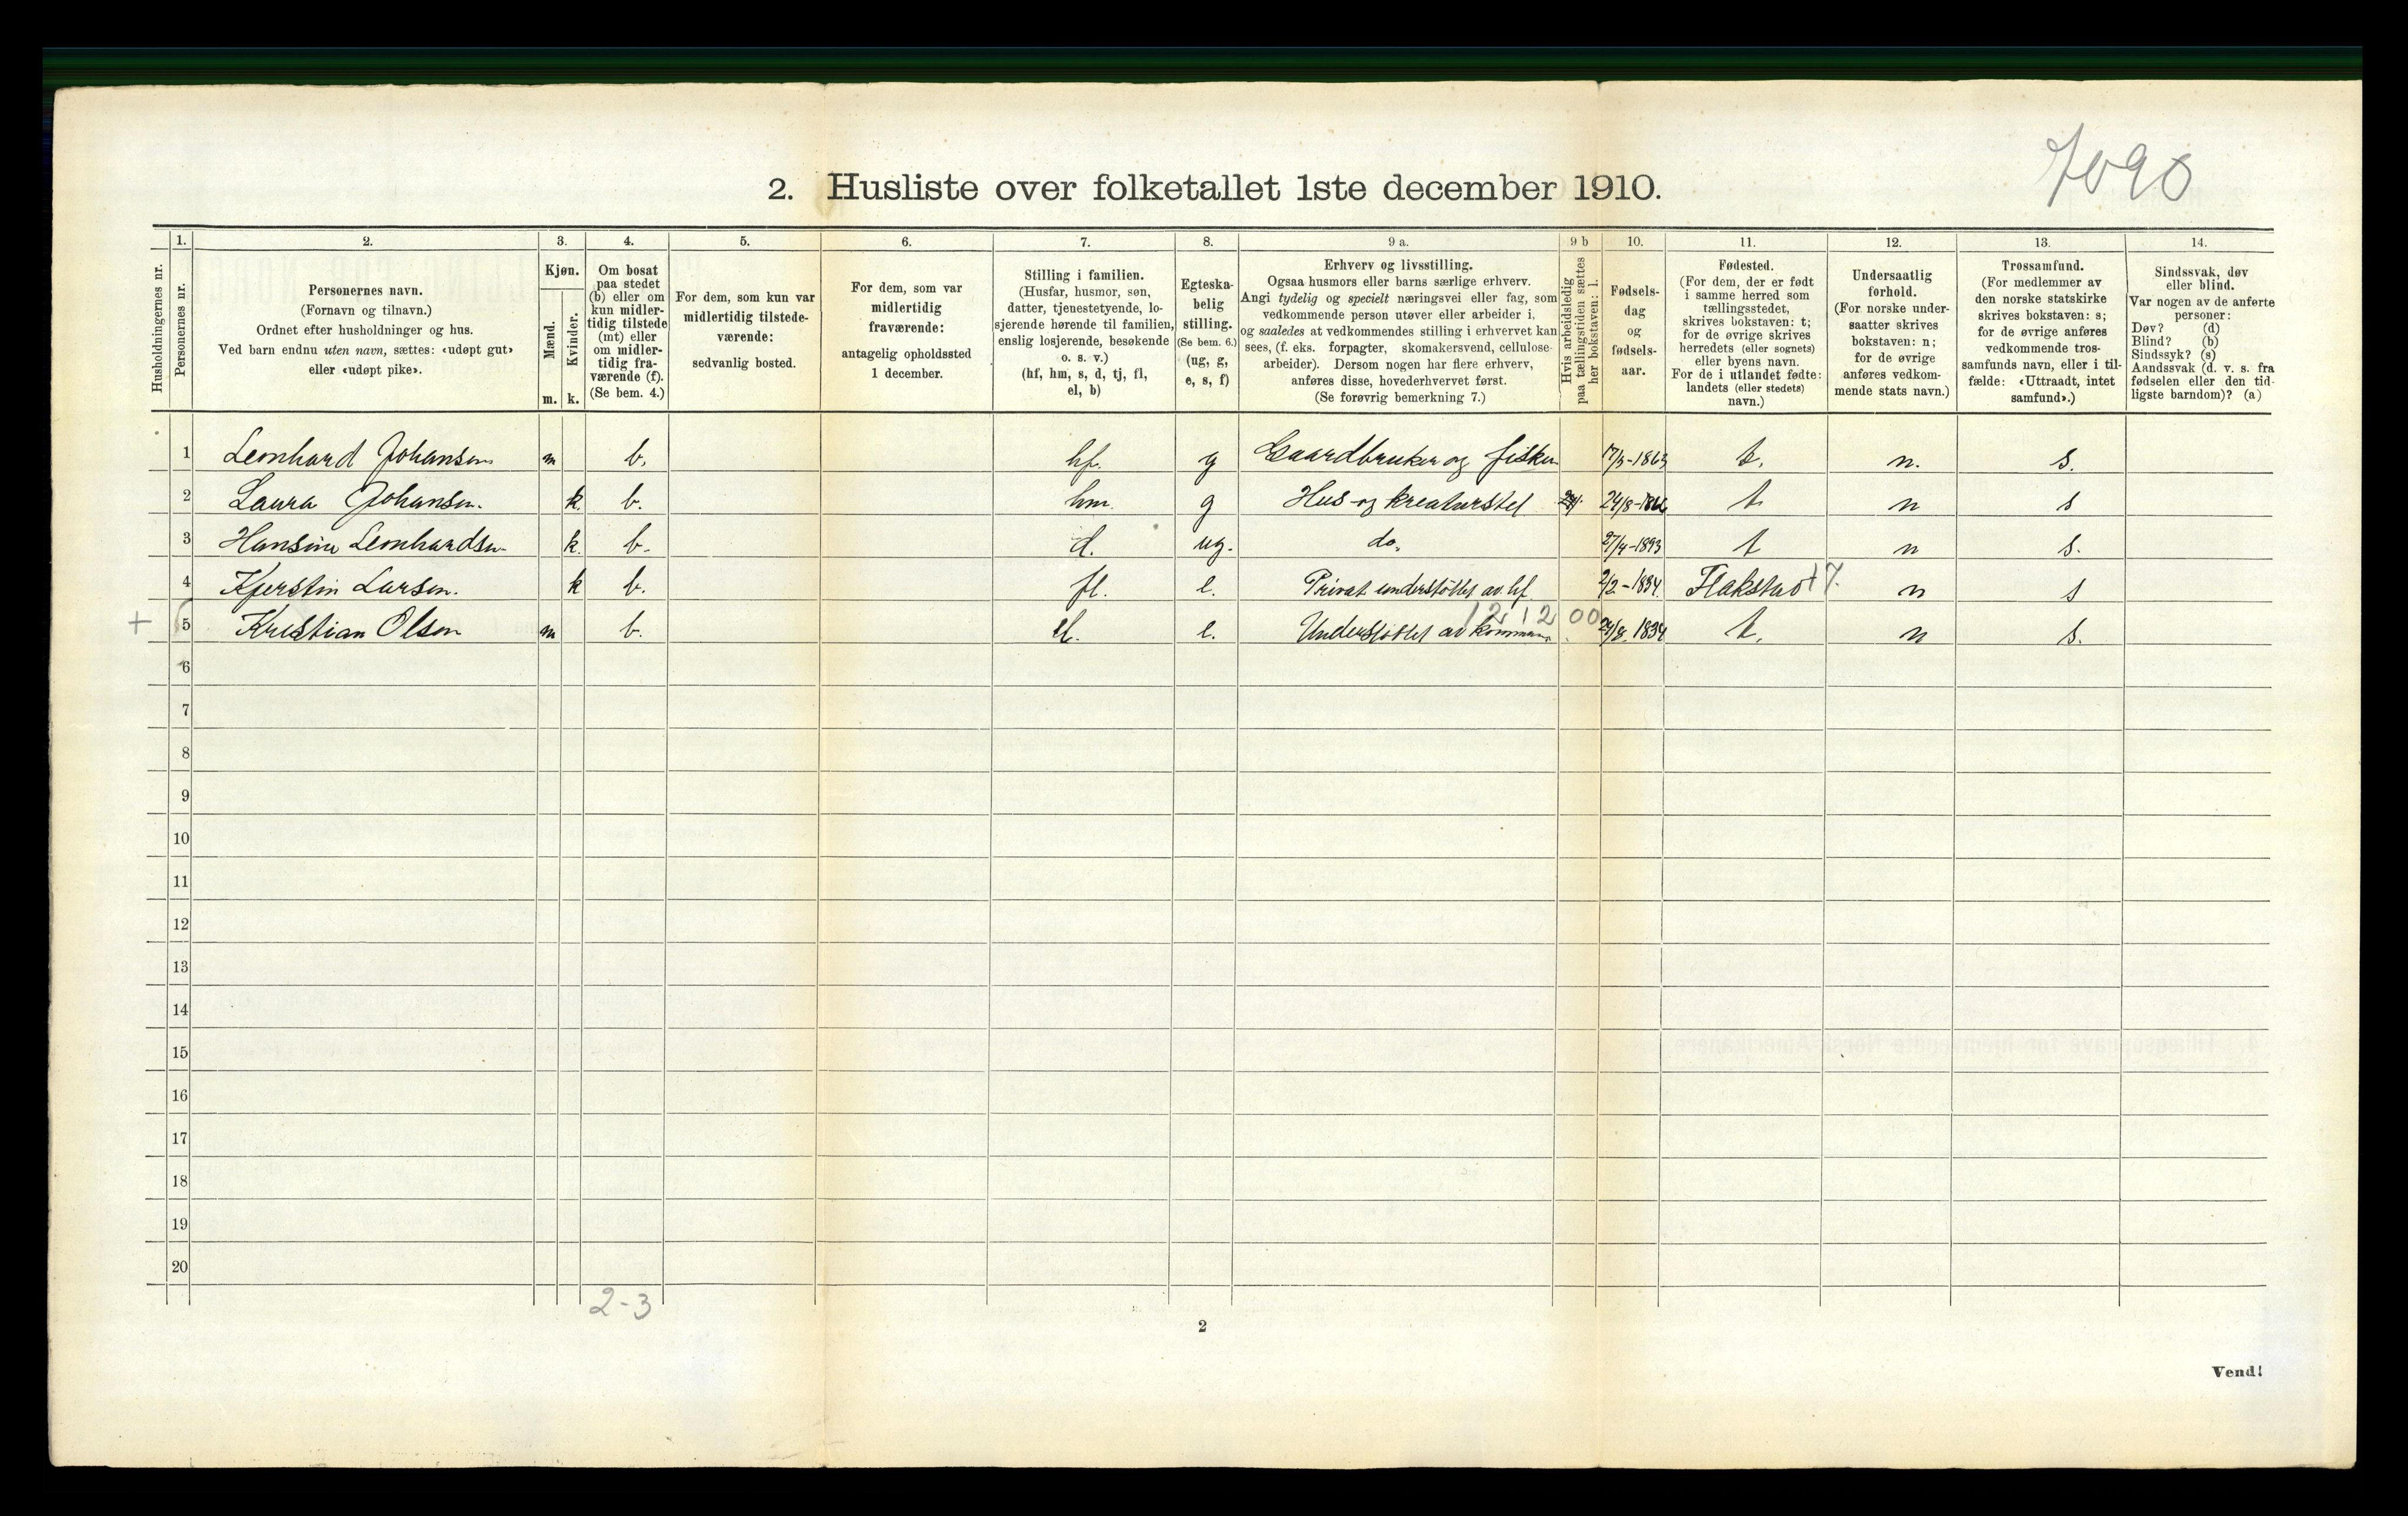 7090
2. Husliste over folketallet 1ste december 1910.
Husholdningernes nr.
1. Personernes nr.
2. Personernes navn. (Fornavn og tilnavn.) Ordnet efter husholdninger og hus. Ved barn endnu uten navn, sættes: «udøpt gut» eller «udøpt pike».
3. Kjøn. Mænd. m. Kvinder. k.
4. Om bosat paa stedet (b) eller om kun midlertidig tilstede (mt) eller om midlertidig fraværende (f). (Se bem. 4.)
5. For dem, som kun var midlertidig tilstedeværende: sedvanlig bosted.
6. For dem, som var midlertidig fraværende: antagelig opholdssted 1 december.
7. Stilling i familien. (Husfar, husmor, søn, datter, tjenestetyende, losjerende hørende til familien, enslig losjerende, besøkende o. s. v.) (hf, hm, s, d, tj, fl, el, b)
8. Egteskabelig stilling. (Se bem. 6.) (ug, g, e, s, f)
9 a. Erhverv og livsstilling. Ogsaa husmors eller barns særlige erhverv. Angi tydelig og specielt næringsvei eller fag, som vedkommende person utøver eller arbeider i, og saaledes at vedkommendes stilling i erhvervet kan sees, (f. eks. forpagter, skomakersvend, cellulosearbeider). Dersom nogen har flere erhverv, anføres disse, hovederhvervet først. (Se forøvrig bemerkning 7.)
9 b Hvis arbeidsledig paa tællingstiden sættes her bokstaven: l.
10. Fødselsdag og fødselsaar.
11. Fødested. (For dem, der er født i samme herred som tællingsstedet, skrives bokstaven: t; for de øvrige skrives herredets (eller sognets) eller byens navn. For de i utlandet fødte: landets (eller stedets) navn.)
12. Undersaatlig forhold. (For norske undersaatter skrives bokstaven: n; for de øvrige anføres vedkommende stats navn.)
13. Trossamfund. (For medlemmer av den norske statskirke skrives bokstaven: s; for de øvrige anføres vedkommende trossamfunds navn, eller i tilfælde: «Uttraadt, intet samfund».)
14. Sindssvak, døv eller blind. Var nogen av de anførte personer: Døv? (d) Blind? (b) Sindssyk? (s) Aandssvak (d. v. s. fra fødselen eller den tidligste barndom)? (a)
1 Leonhard Johansen m b. hf. g Gaardbruker og fisker 17/3-1863 t. n. s.
2 Laura Johansen. k. b. hm. g Hus- og kreaturstel 24/8-1866 t. n s
3 Hansine Leonhardsen k. b. d. ug. do. 27/4-1893 t n s.
4 Kjerstin Larsen. k b. fl. e. Privat understøttet av hf 2/2-1834. Flakstad +7. n s
+ 5 Kristian Olsen m b. el. e. Understøttet av kommun. 12 12 00 24/8. 1834. t. n s.
6
7
8
9
10
11
12
13
14
15
16
17
18
19
20
2-3
2
Vend!